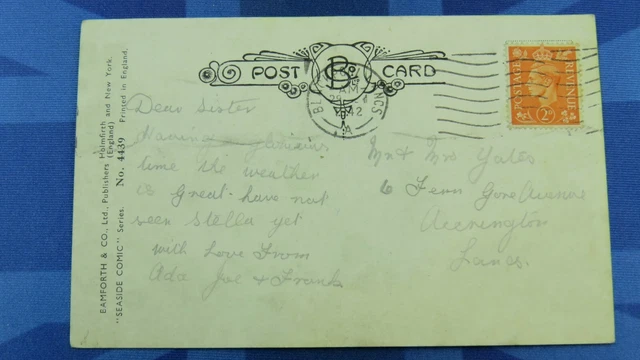 BAMFORTH & CO., Ltd., Publishers Holmfirth
(England) and New York.
"SEASIDE COMIC" Series. No. 4439 Printed in England.
POST CARD
B & Co
AM
42
BL
POSTAGE
REVENUE
2D
Dear Sister
Having glorious
time the weather
is great. have not
seen Stella yet
with Love From
Ada Joe & Frank
Mr & Mrs Yates
6 Fern Gore Avenue
Accrington
Lancs.